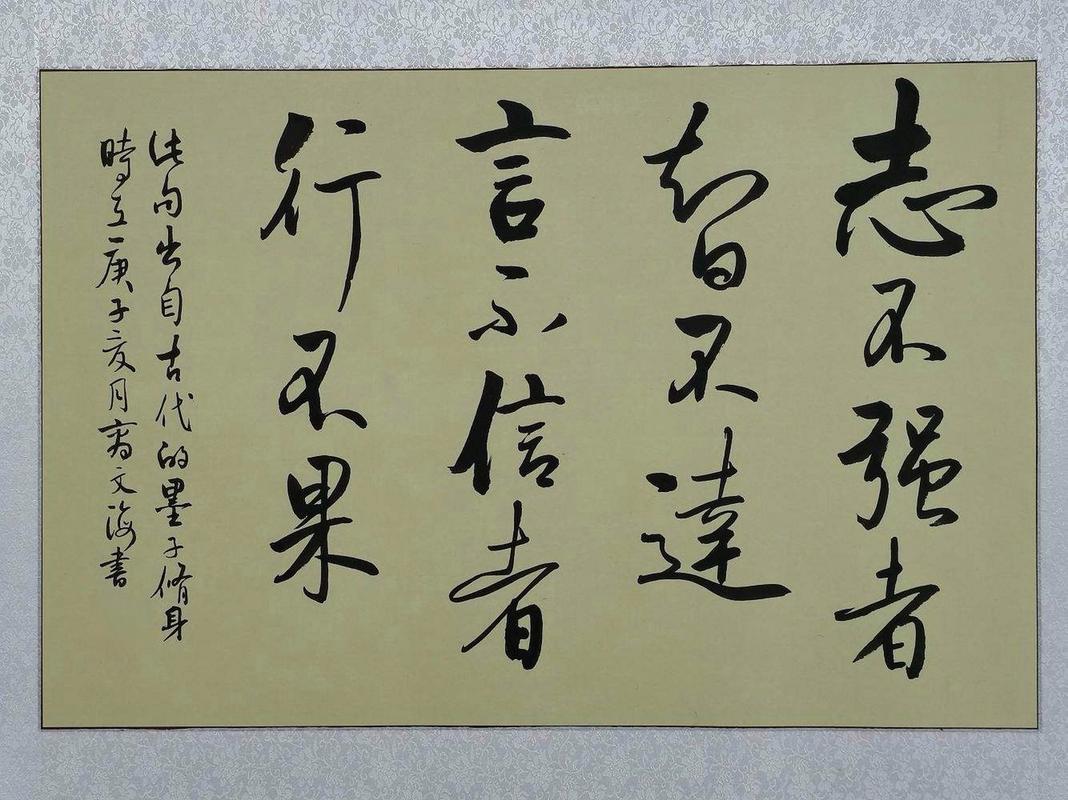 志不强者
智不達
言不信者
行不果
此句出自古代的墨子脩身
時在庚子亥月 文海書